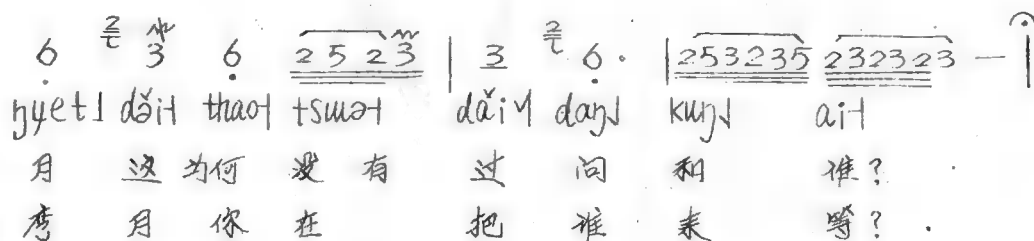 6 3 6 2 5 2 3 | 3 6 · | 2 5 3 2 3 5 2 3 2 3 2 3 —
ŋyet˩ dǒi˧ thao˧ tsɯə˧ dǎi˦ daŋ˩ kuŋ˩ ai˧
月 这 为何 没有 过 问 和 谁?
弯 月 你 在 把 谁 来 等?